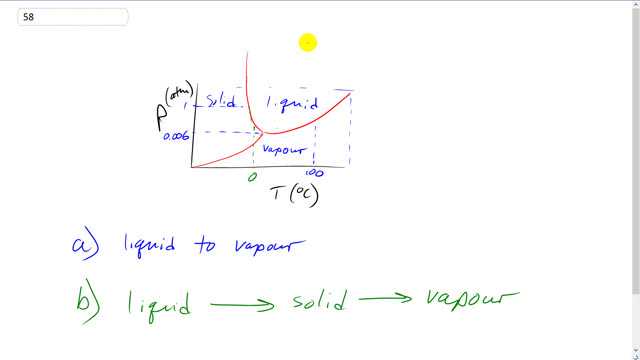 58
(atm)
P
1
solid
liquid
0.006
vapour
0
100
T (°C)
a) liquid to vapour
b) liquid → solid → vapour